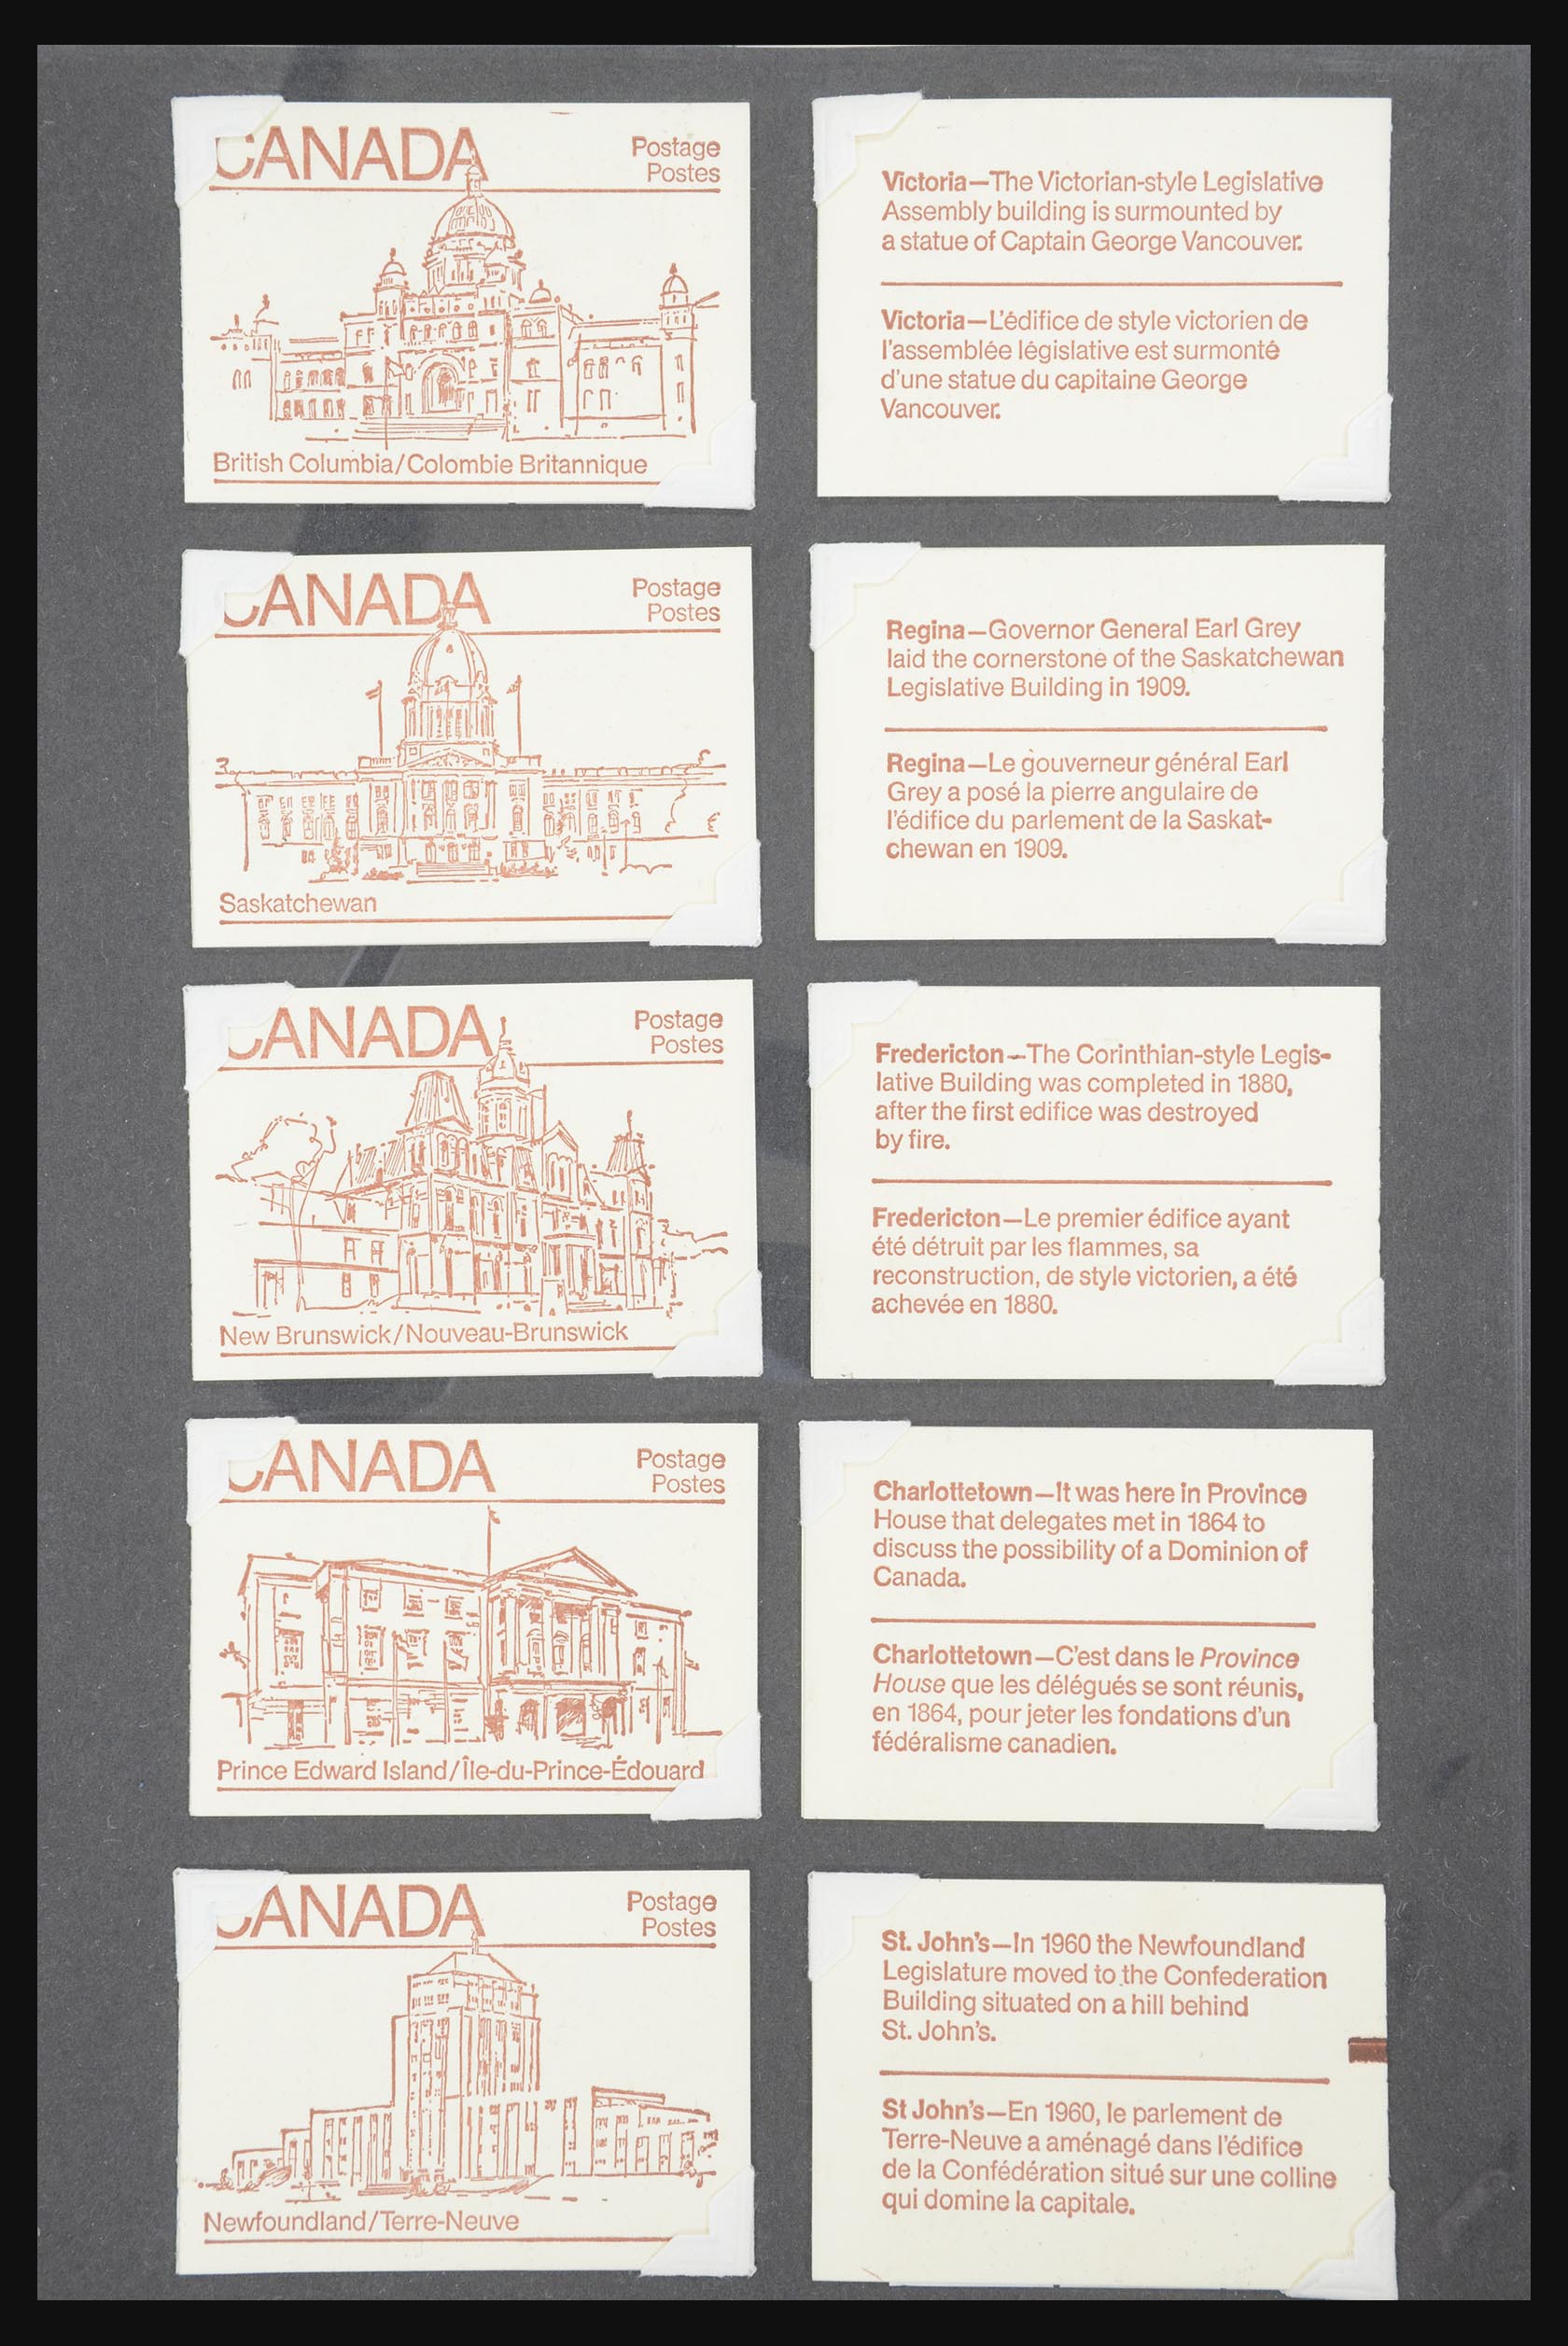 CANADA
Postage
Postes
British Columbia/Colombie Britannique
Victoria—The Victorian-style Legislative
Assembly building is surmounted by
a statue of Captain George Vancouver.
Victoria—L'édifice de style victorien de
l'assemblée législative est surmonté
d'une statue du capitaine George
Vancouver.
CANADA
Postage
Postes
Saskatchewan
Regina—Governor General Earl Grey
laid the cornerstone of the Saskatchewan
Legislative Building in 1909.
Regina—Le gouverneur général Earl
Grey a posé la pierre angulaire de
l'édifice du parlement de la Saskat-
chewan en 1909.
CANADA
Postage
Postes
New Brunswick/Nouveau-Brunswick
Fredericton—The Corinthian-style Legis-
lative Building was completed in 1880,
after the first edifice was destroyed
by fire.
Fredericton—Le premier édifice ayant
été détruit par les flammes, sa
reconstruction, de style victorien, a été
achevée en 1880.
CANADA
Postage
Postes
Prince Edward Island/Île-du-Prince-Édouard
Charlottetown—It was here in Province
House that delegates met in 1864 to
discuss the possibility of a Dominion of
Canada.
Charlottetown—C'est dans le Province
House que les délégués se sont réunis,
en 1864, pour jeter les fondations d'un
fédéralisme canadien.
CANADA
Postage
Postes
Newfoundland/Terre-Neuve
St. John's—In 1960 the Newfoundland
Legislature moved to the Confederation
Building situated on a hill behind
St. John's.
St John's—En 1960, le parlement de
Terre-Neuve a aménagé dans l'édifice
de la Confédération situé sur une colline
qui domine la capitale.